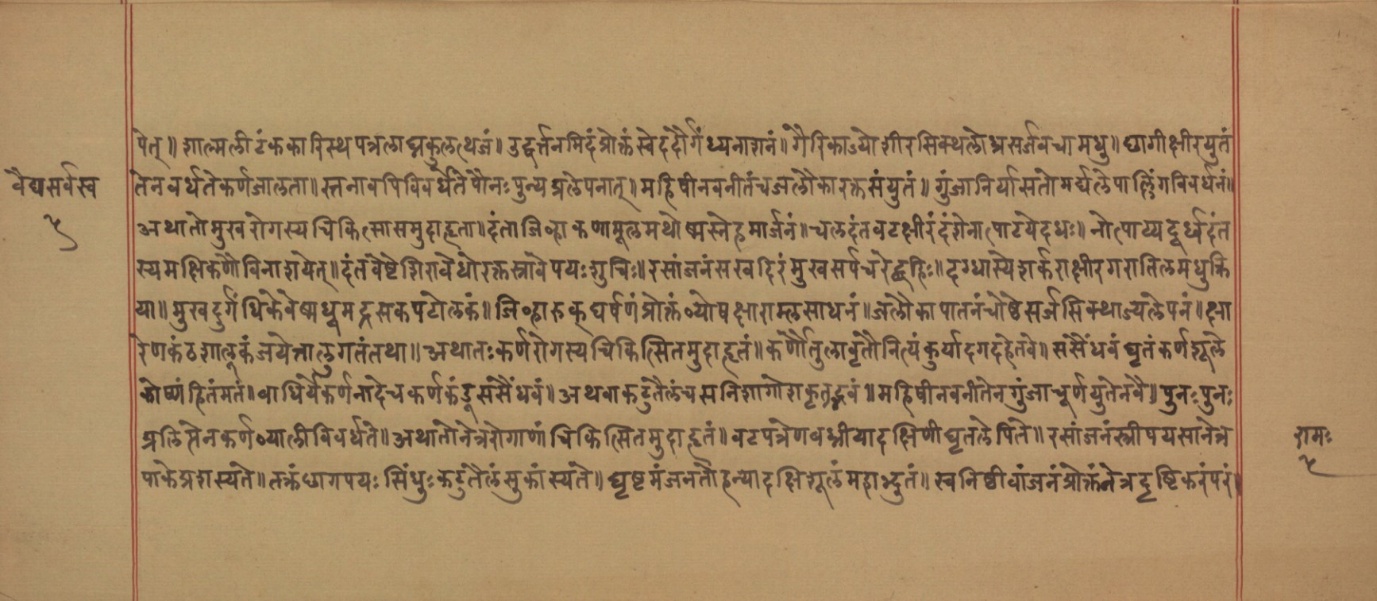 पेत्॥ शाल्मलीटंककारिस्थपत्रलाघ्नकुलत्थजं॥ उद्वर्त्तनमिदंप्रोक्तंस्वेददौर्गंध्यनाशनं॥ गैरिकाज्योशीरसिक्थलोध्रसर्जवचामधु॥ छागीक्षीरयुतं
वैद्यसर्वस्व
५
तेनवर्धतेकर्णजालता॥ स्तनावपिविवर्धेतेपौनःपुन्यप्रलेपनात्॥ महिषीनवनीतंचजलौकारक्तसंयुतं॥ गुंजानिर्यासतोमर्द्यलेपाल्लिंगविवर्धनं॥
अथातोमुखरोगस्यचिकित्सासमुदाहृता॥ दंतोजिव्हाकणामूलमथोष्मस्नेहमार्जनं॥ चलदंतवटक्षीरंदंशेनोत्पाटयेदधः॥ नोत्पाट्यदूर्ध्वदंत
स्यमक्षिकर्णौविनाशयेत्॥ दंतवेष्टेशिरावेधोरक्तस्रावेपयःशुचिः॥ रसांजनंसखदिरंमुखसर्पचरेद्बहिः॥ दग्धास्येशर्कराक्षीरगरातिलमधुक्रि
या॥ मुखदुर्गंधिकेवेष्मधूमद्गसकपटोलकं॥ जिव्हारुक्घर्षणंप्रोक्तंव्योषक्षाराम्लसाधनं॥ जलौकापातनंचोष्ठेसर्जसिक्थाज्यलेपनं॥ क्षा
रेणकंठशालूकंजयेत्तालुगतंतथा॥ अथातःकर्णरोगस्यचिकित्सितमुदाहृतं॥ कर्णौतुलावृतौनित्यंकुर्यादगदहेतवे॥ ससैंधवंघृतंकर्णशूले
कोष्णंहितंमतं॥ बाधिर्येकर्णनादेचकर्णकंडूससैंधवं॥ अथवाकटुतैलंचसनिशागोशकृतद्भवं॥ महिषीनवनीतेनगुंजाचूर्णयुतेनवै॥ पुनःपुनः
प्रलिप्तेनकर्णव्यालीविवर्धते॥ अथातोनेत्ररोगाणांचिकित्सितमुदाहृतं॥ वटपत्रेणबध्नीयादक्षिणीघृतलेपिते॥ रसांजनंस्त्रीपयसानेत्र
पाकेप्रशस्यते॥ तक्रंछागपयःसिंधुःकटुतैलंसुकांस्यते॥ घृष्टमंजनतोहन्यादक्षिशूलंमहाद्भुतं॥ स्वनिष्ठीवांजनंप्रोक्तंनेत्रदृष्टिकरंपरं॥
रामः
५